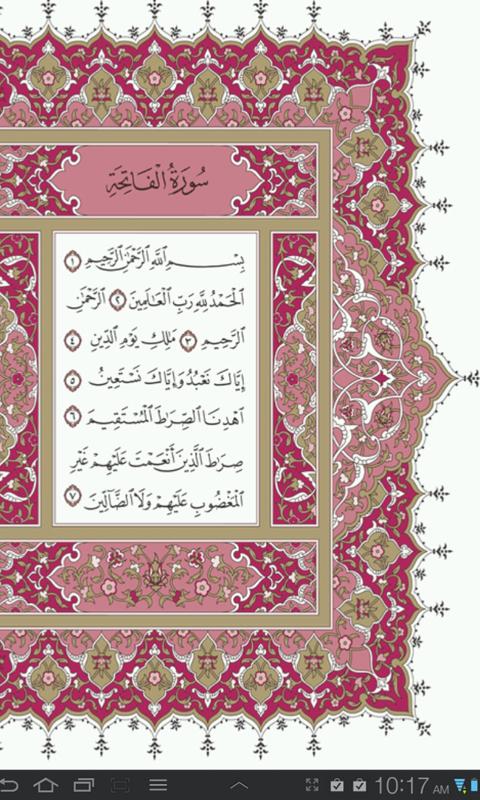 سُورَةُ الْفَاتِحَةِ
بِسْمِ اللَّهِ الرَّحْمَٰنِ الرَّحِيمِ ١
الْحَمْدُ لِلَّهِ رَبِّ الْعَالَمِينَ ٢ الرَّحْمَٰنِ
الرَّحِيمِ ٣ مَالِكِ يَوْمِ الدِّينِ ٤
إِيَّاكَ نَعْبُدُ وَإِيَّاكَ نَسْتَعِينُ ٥
اهْدِنَا الصِّرَاطَ الْمُسْتَقِيمَ ٦
صِرَاطَ الَّذِينَ أَنْعَمْتَ عَلَيْهِمْ غَيْرِ
الْمَغْضُوبِ عَلَيْهِمْ وَلَا الضَّالِّينَ ٧
10:17 AM